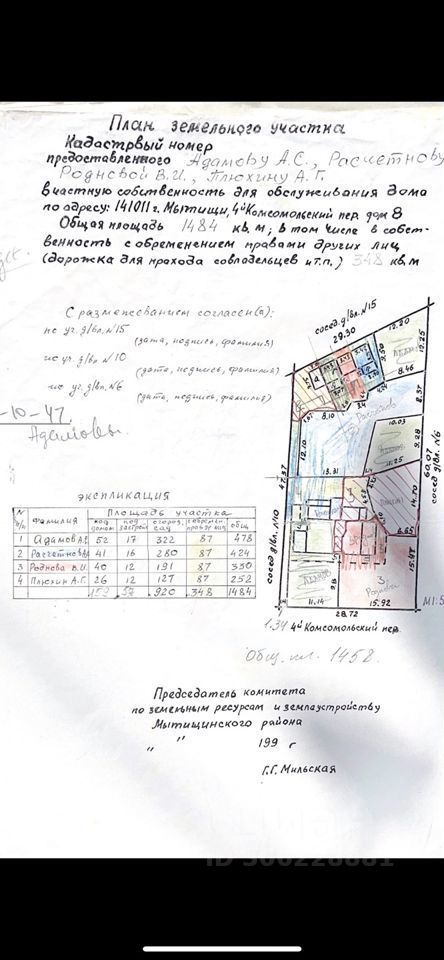 План земельного участка
Кадастровый номер
предоставленного Адамову А.С., Расчетнову
Родновой В.И., Плюхину А.Г.
в частную собственность для обслуживания дома
по адресу: 141011 г. Мытищи, 4й Комсомольский пер. дом 8
Общая площадь 1484 кв.м; в том числе в собст-
венность с обременением правами других лиц
(дорожка для прохода совладельцев и т.п.) 348 кв.м
С размежеванием согласен(а):
по уч. д/вл. №15
(дата, подпись, фамилия)
по уч. д/вл. №10
(дата, подпись, фамилия)
по уч. д/вл. №6
(дата, подпись, фамилия)
-10-47
Адамовы
сосед. д/вл. №15
29.30
12.20
12.25
9.50
8.46
8.37
8.10
10.03
9.28
12.10
11.25
13.31
14.70
47.37
60.07
сосед д/вл. №6
сосед д/вл. №10
6.65
15.47
9.8
3
Роднова
11.14
15.92
28.72
1.34
4й Комсомольский пер.
М1:5
Общ. пл. 1458
экспликация
N п/п фамилия Площадь участка
под домом под застр. огород сад общ
1 Адамов А.С. 52 17 322 87 478
2 Расчетнов 41 16 280 87 424
3 Роднова В.И. 40 12 191 87 330
4 Плюхин А.Г. 26 12 127 87 252
159 57 920 348 1484
Председатель комитета
по земельным ресурсам и землеустройству
Мытищинского района
" " 199 г
Г.Г. Мильская